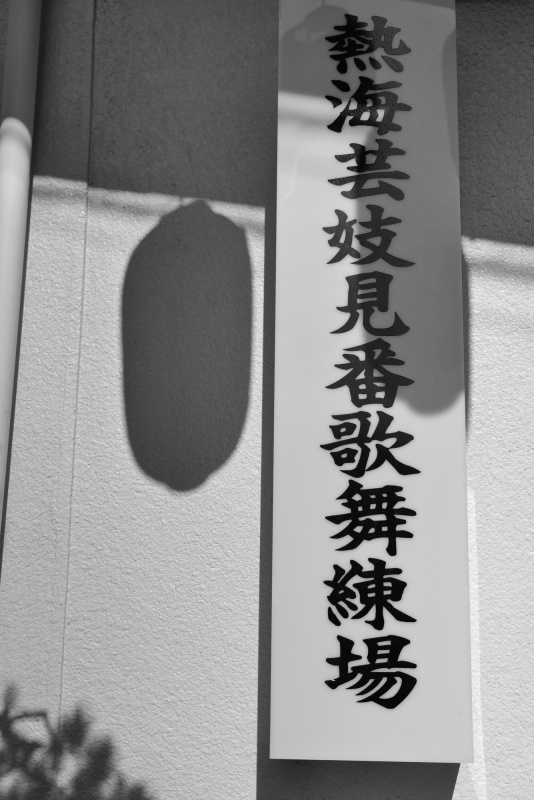 熱海芸妓見番歌舞練場